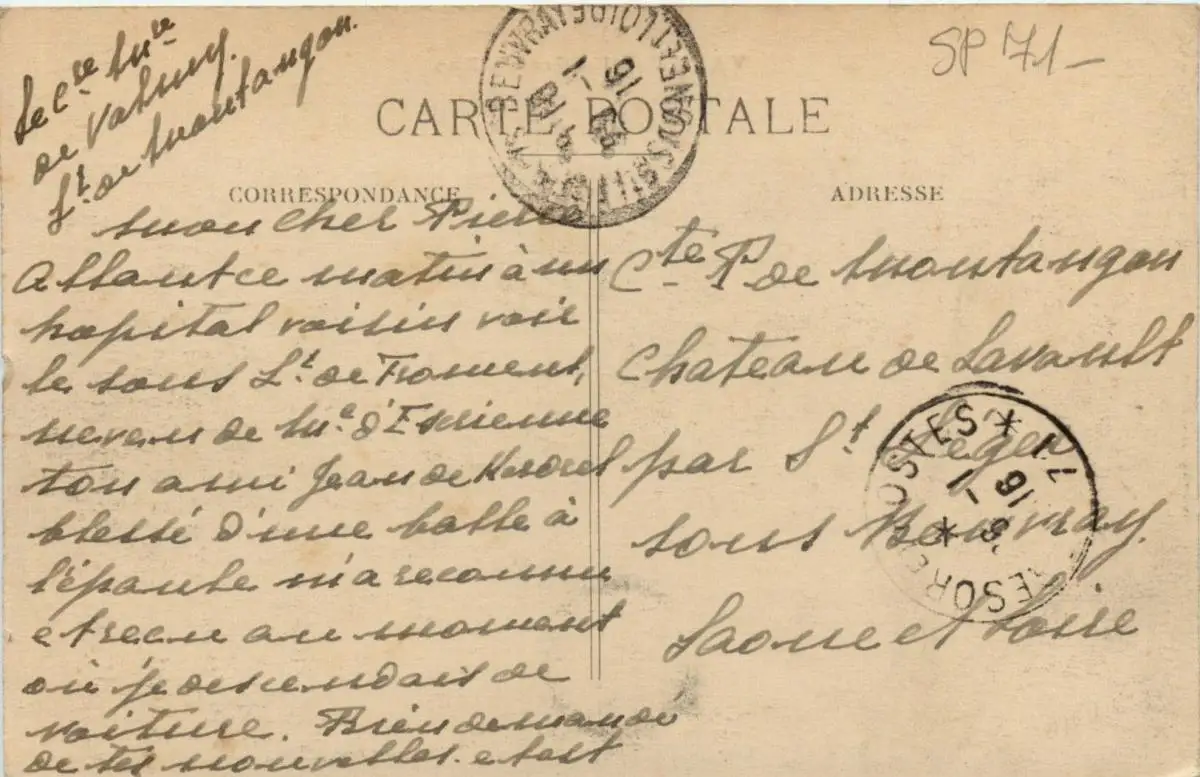 de Valmy.
Lt. de Montangon.
SP 71_
CARTE POSTALE
CORRESPONDANCE
ADRESSE
mon cher Pierre
Allant ce matin à un
hopital voisin voir
le sous Lt. de Froment,
neveu de Me d'Esrienne
ton ami Jean de
blessé d'une balle à
l'épaule m'a reconnu
et reçu au moment
où je descendais de
voiture. Bien demandé
de tes nouvelles. et est
Cte P. de Montangon
Chateau de Lavault
par St Léger
sous Beuvray.
Saone et Loire
ST LEGER SOUS BEUVRAY
16 -1
TRESOR ET POSTES * 71 *
16 -1